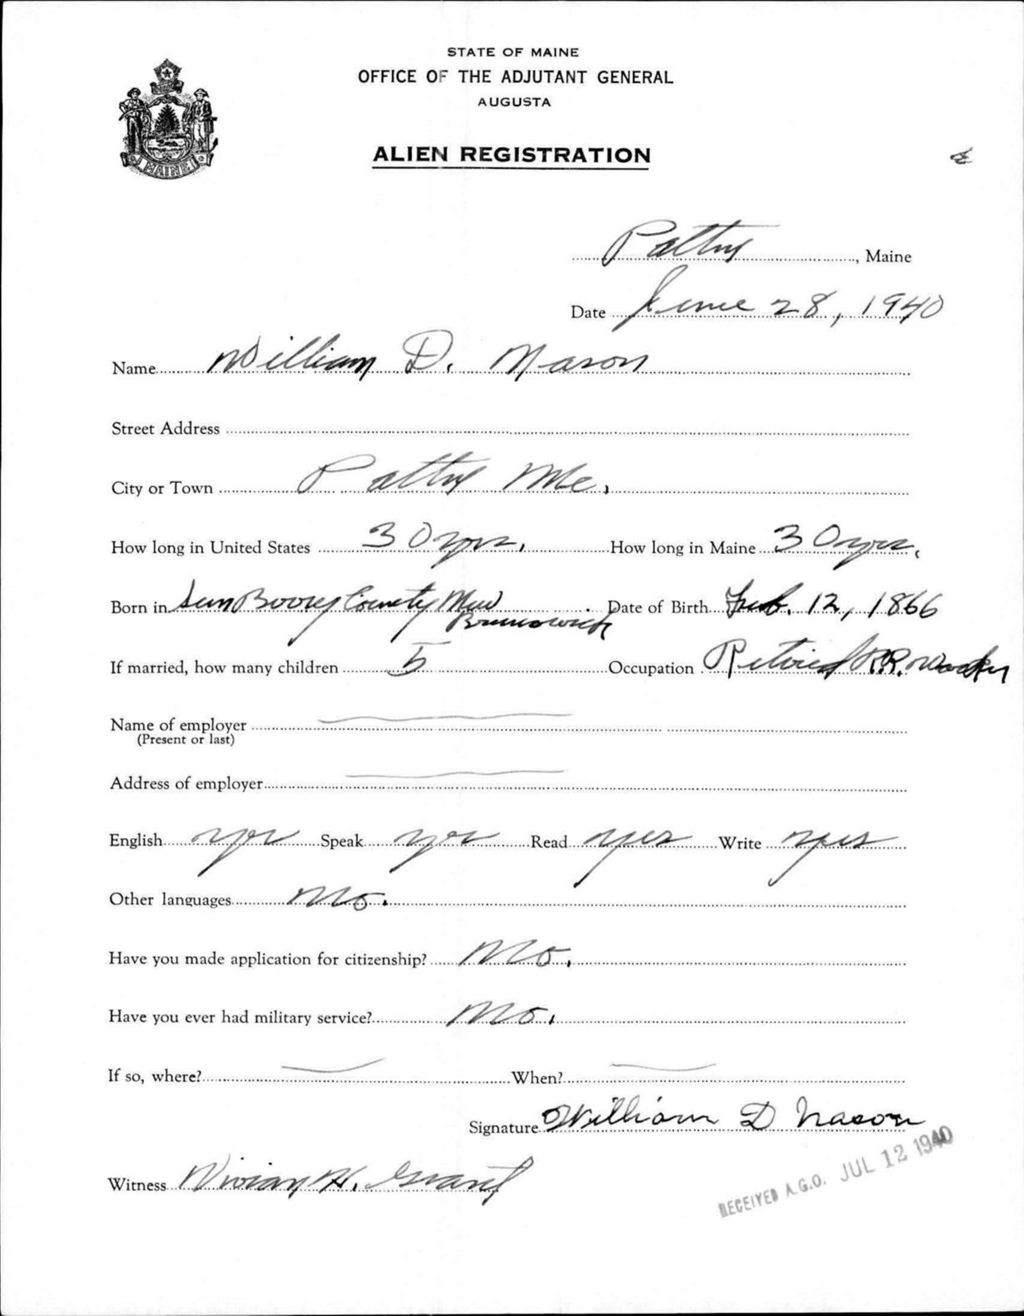 STATE OF MAINE
OFFICE OF THE ADJUTANT GENERAL
AUGUSTA
ALIEN REGISTRATION
MAINE
Patten, Maine
Date June 28, 1940
Name William D. Nason
Street Address
City or Town Patten Me.
How long in United States 30 yrs. How long in Maine 30 yrs.
Born in County New Brunswick Date of Birth Feb. 12, 1866
If married, how many children 5 Occupation Retired R.R. Worker
Name of employer
(Present or last)
Address of employer
English yes Speak yes Read yes Write yes
Other languages No.
Have you made application for citizenship? No.
Have you ever had military service? No.
If so, where? When?
Signature William D Nason
Witness Vivian H. Grant
RECEIVED A.G.O. JUL 12 1940